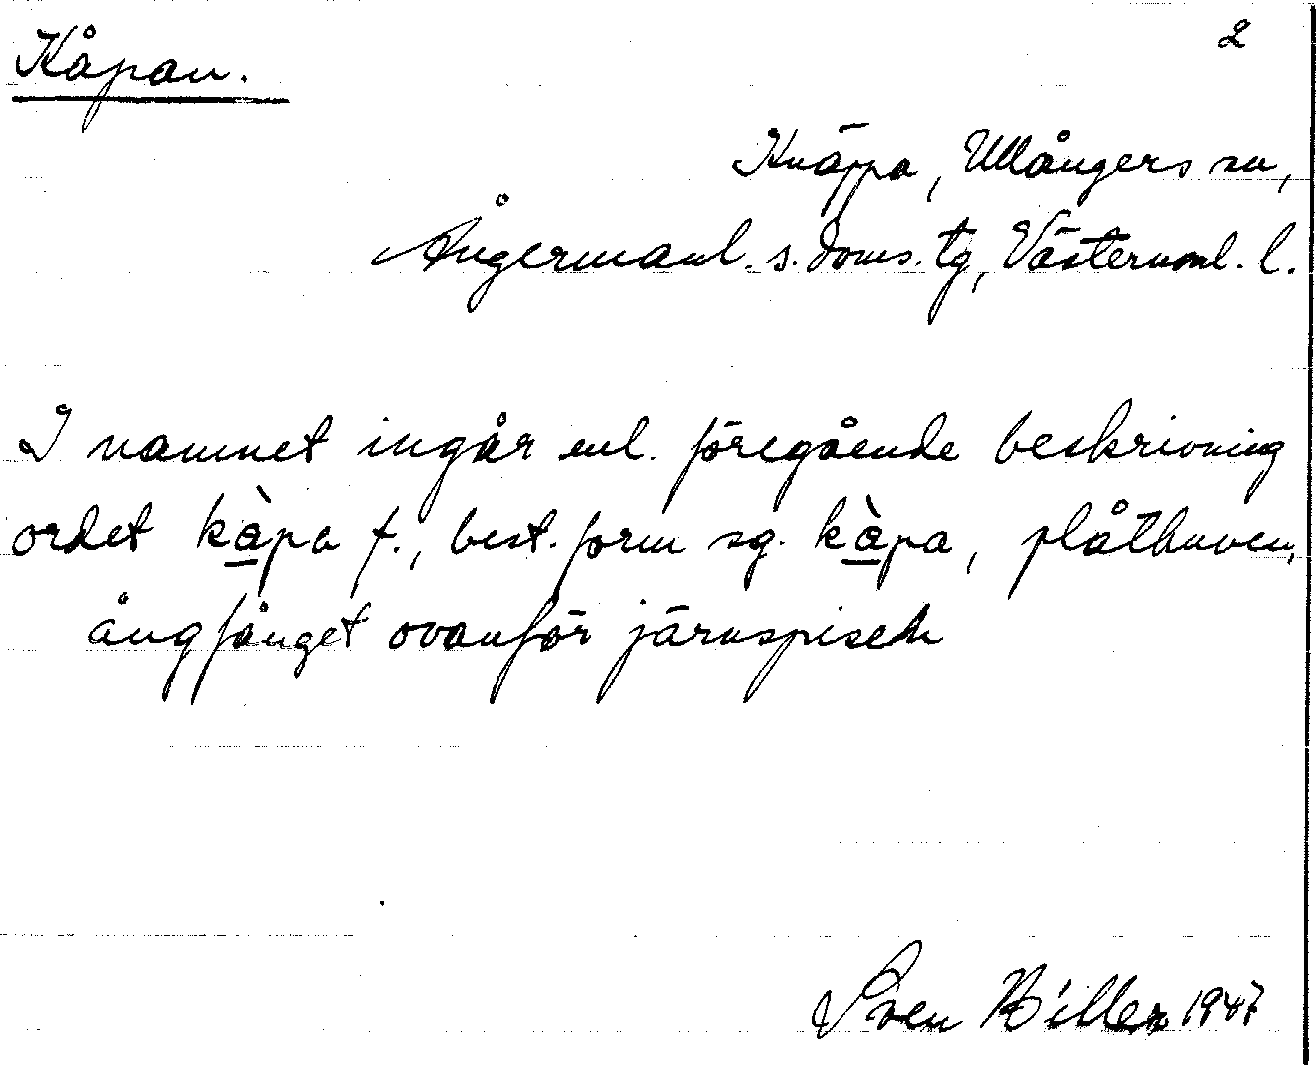 2
Kåpan.
Knäppa, Ullångers sn,
Ångermanl. s. doms. tg, Västernorrl. l.
I namnet ingår enl. föregående beskrivning
ordet kà̱pa f., best. form sg. kà̱pa, plåthuven,
ångfånget ovanför järnspiseln
Sven Hillen 1947